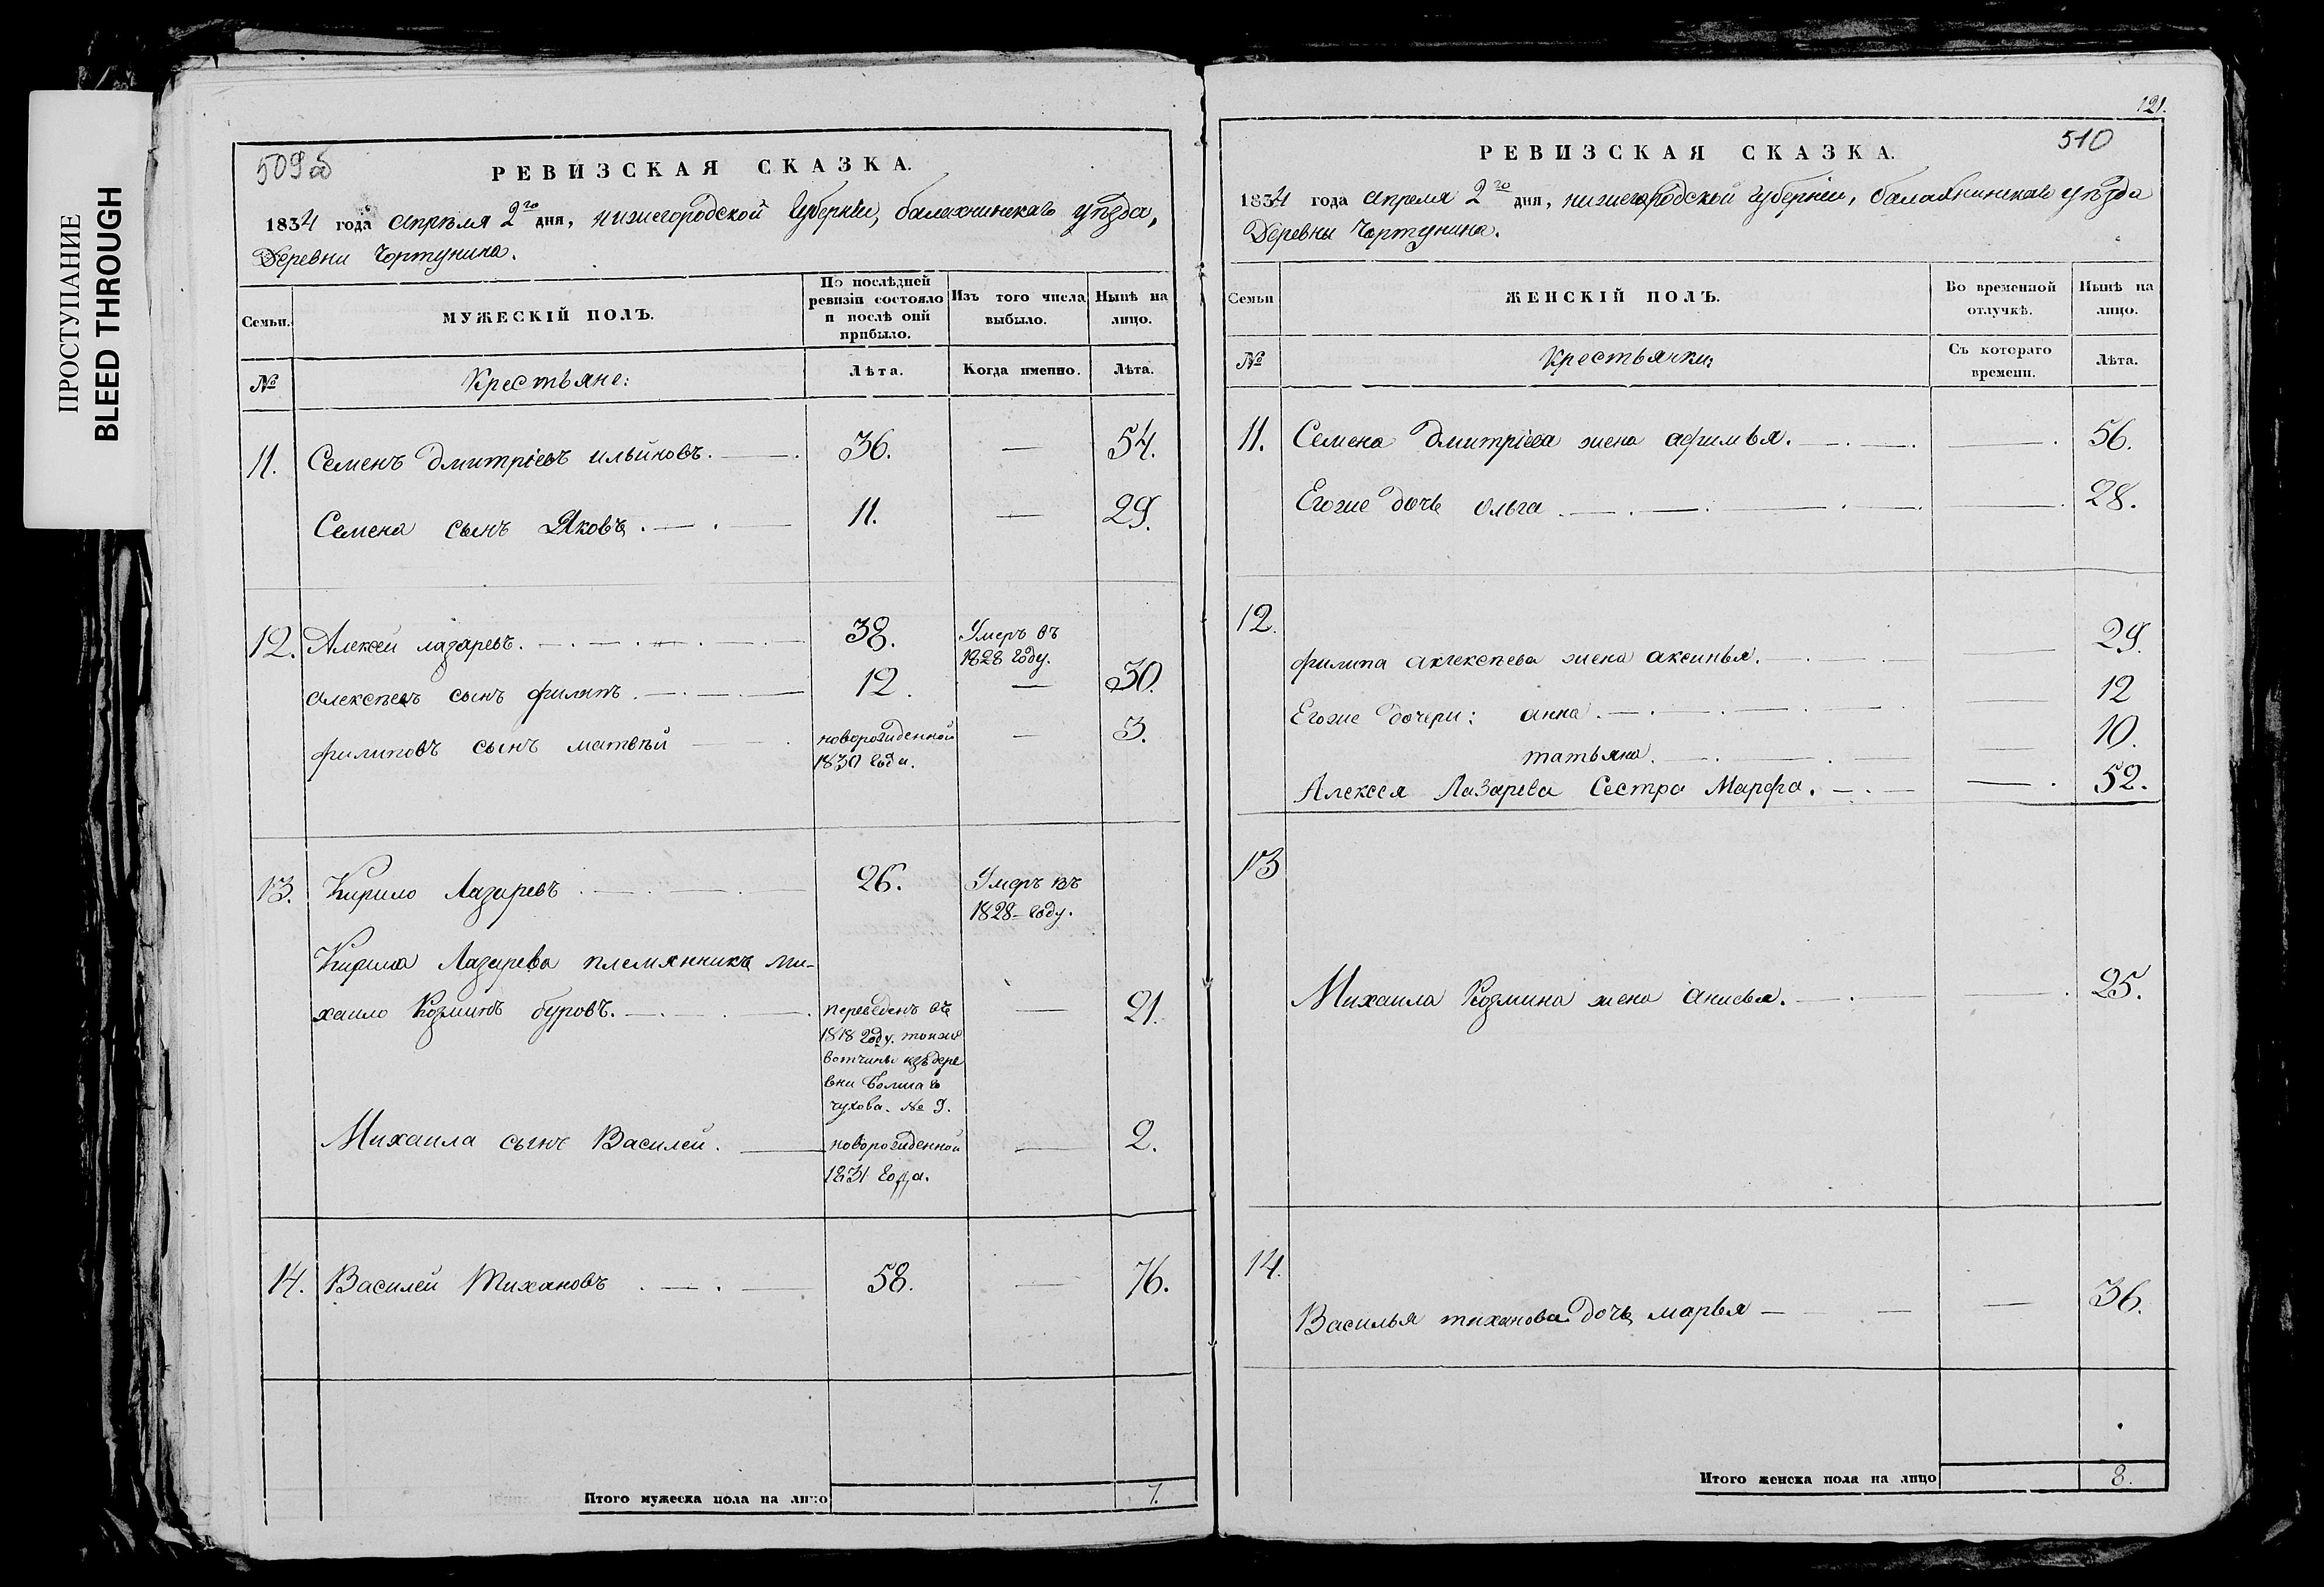 ПРОСТУПАНИЕ
BLEED THROUGH
509об
РЕВИЗСКАЯ СКАЗКА.
1834 года апрѣля 2го дня, нижегородской губерніи, балахнинскаго уѣзда,
Деревни Чортунина.
Семьи. МУЖЕСКІЙ ПОЛЪ. По послѣдней ревизіи состояло и послѣ оной прибыло. Изъ того числа выбыло. Нынѣ на лицо.
№ Крестьяне: Лѣта. Когда именно. Лѣта.
11. Семенъ Дмитріевъ ильиновъ. 36. — 54.
Семена сынъ Яковъ. 11. — 29.
12. Алексей лазаревъ. 38. Умеръ въ
1828 году.
алексѣевъ сынъ филипъ. 12. — 30.
филиповъ сынъ матвѣй новорожденной — 3.
1830 года.
13. Кирило Лазаревъ 26. Умеръ въ
1828 году.
Кирила Лазарева племянникъ ми-
хаило Козминъ буровъ. переведенъ въ — 21.
1818 году. тоижѣ
вотчины изъ дере
вни
чухова. № 9.
Михаила сынъ Василей. новорожденной — 2.
1831 года.
14. Василей Тихановъ 58. — 76.
Итого мужеска пола на лицо 7.
121.
510
РЕВИЗСКАЯ СКАЗКА.
1834 года апреля 2го дня, нижегородской губерніи, балахнинскаго уѣзда
Деревни Чортунина.
Семьи ЖЕНСКІЙ ПОЛЪ. Во временной отлучкѣ. Нынѣ на лицо.
№ Крестьянки: Съ котораго времени. Лѣта.
11. Семена Дмитріева жена афимья. — 56.
Егоже дочь Ольга — 28.
12.
филипа алексѣева жена аксинья. — 29.
Егоже дочери: анна. — 12
татьяна. — 10.
Алексея Лазарева Сестра Марфа. — 52.
13
Михаила Козмина жена анисья. — 25.
14.
Василья тиханова дочь марья — 36.
Итого женска пола на лицо 8.